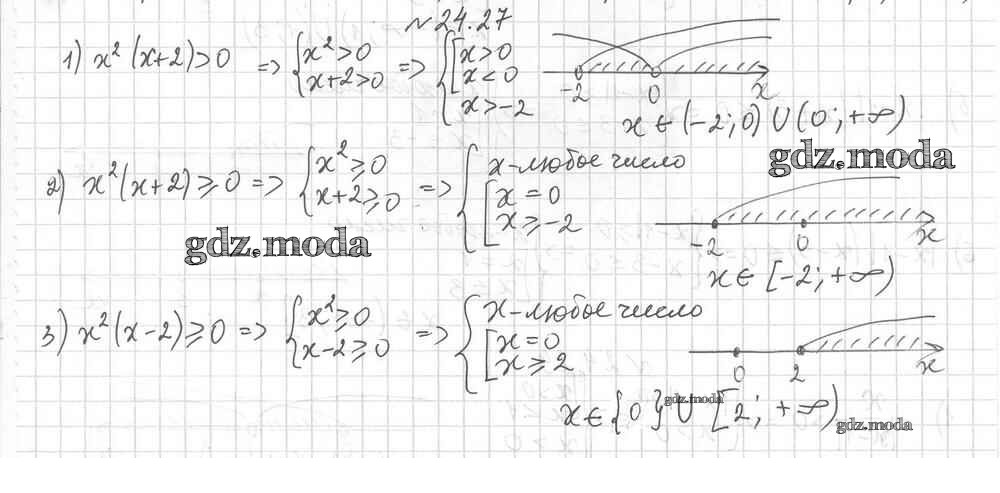 № 24.27
1) x² (x+2)>0 => { x²>0 x+2>0 => { [ x>0 x<0 x>-2
-2 0 x
x ∈ (-2; 0) ∪ (0; +∞)
gdz.moda
2) x² (x+2) ≥ 0 => { x² ≥ 0 x+2 ≥ 0 => { x-любое число [ x = 0 x ≥ -2
-2 0 x
gdz.moda
x ∈ [-2; +∞)
3) x² (x-2) ≥ 0 => { x² ≥ 0 x-2 ≥ 0 => { x-любое число [ x = 0 x ≥ 2
0 2 x
x ∈ {0} ∪ [2; +∞)
gdz.moda
gdz.moda